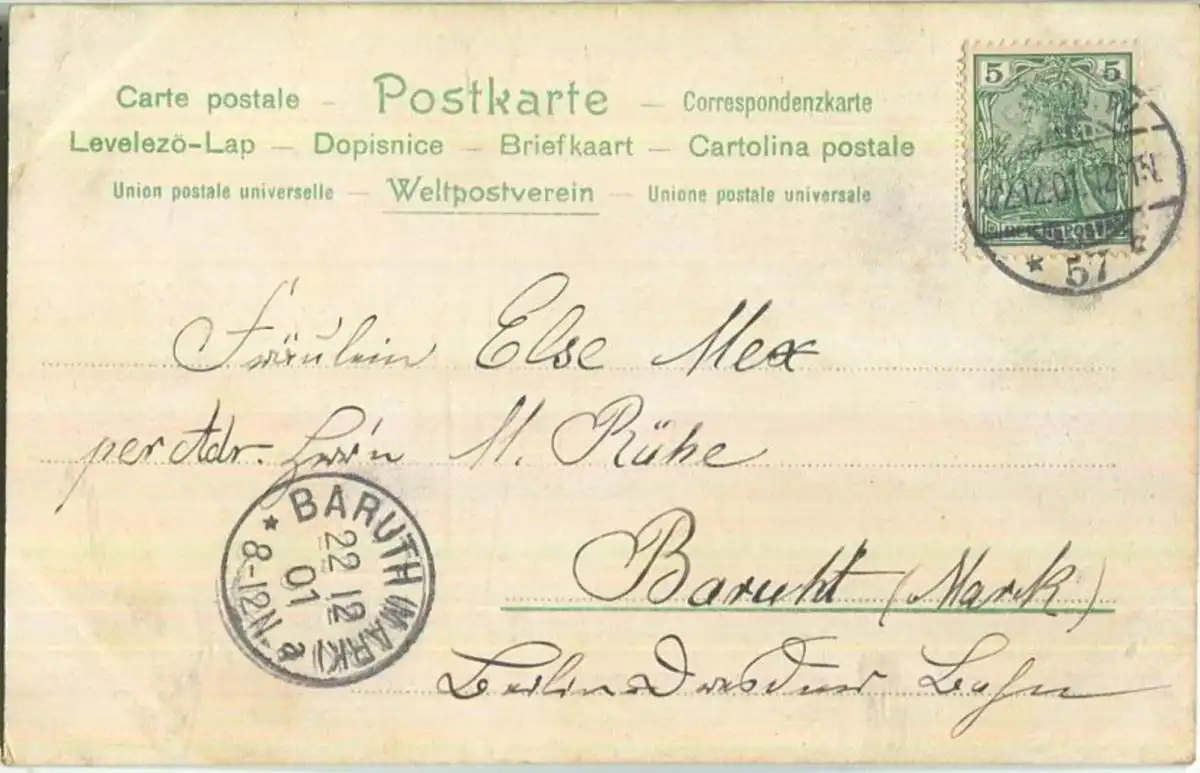 Carte postale – Postkarte – Correspondenzkarte
Levelező-Lap – Dopisnice – Briefkaart – Cartolina postale
Union postale universelle – Weltpostverein – Unione postale universale
5 5
22.12.01. 12-1N.
* 57 c
Fräulein Else Mex
per Adr. Herrn M. Rühe
Baruht (Mark)
Berlin-Dresdner Bahn
* BARUTH (MARK) a
22 12
01
8-12N.